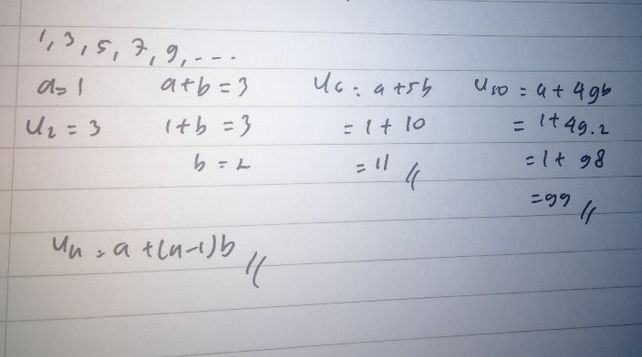 1, 3, 5, 7, 9, ....
a = 1 a + b = 3 U6 = a + 5b U50 = a + 49b
U2 = 3 1 + b = 3 = 1 + 10 = 1 + 49.2
b = 2 = 11 // = 1 + 98
= 99 //
Un = a + (n-1)b //